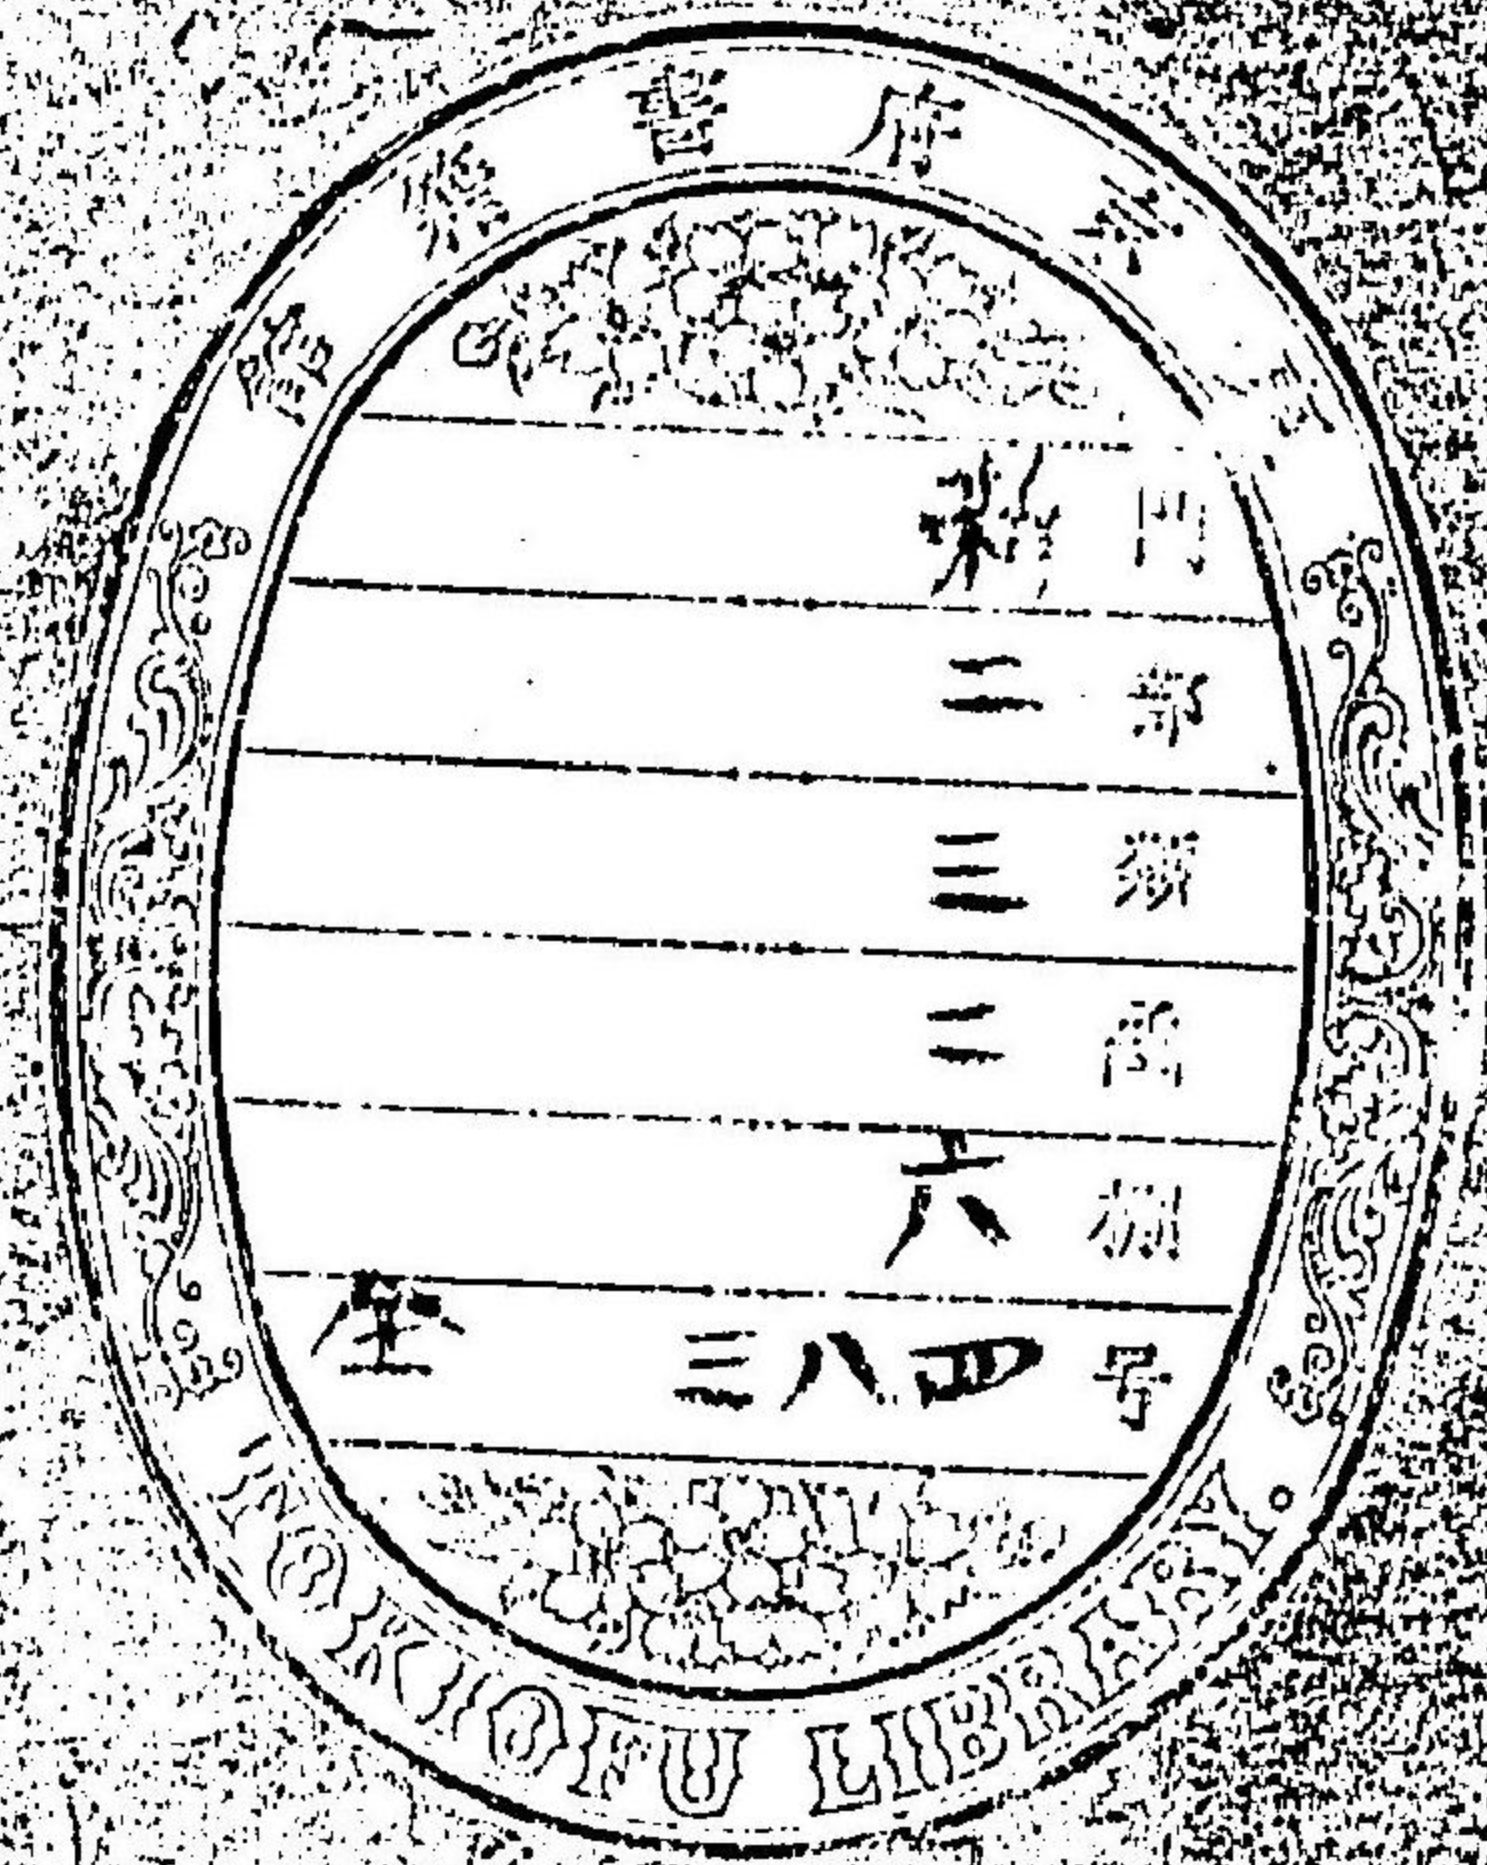 東京府書籍館
門 新
部 二
類 三
函 二
棚 六
号 四八三 全
TOKIOFU LIBRARY.